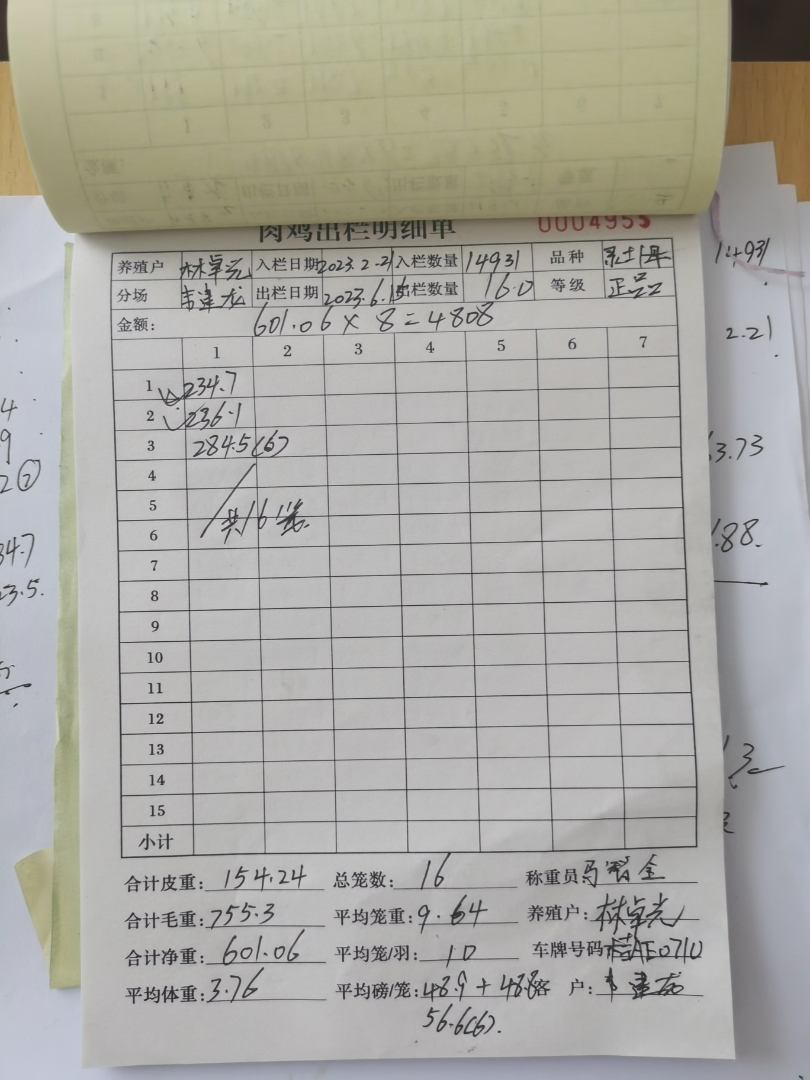 肉鸡出栏明细单 0004955
养殖户 林卓光 入栏日期 2023.2.21 入栏数量 14931 品种
分场 韦建龙 出栏日期 2023.6.15 出栏数量 160 等级 正品
金额: 601.06 × 8 = 4808
1 2 3 4 5 6 7
1 234.7
2 236.1
3 284.5(6)
4
5
6 共16笼
7
8
9
10
11
12
13
14
15
小计
合计皮重: 154.24 总笼数: 16 称重员
合计毛重: 755.3 平均笼重: 9.64 养殖户: 林卓光
合计净重: 601.06 平均笼/羽: 10 车牌号码 桂AE0710
平均体重: 3.76 平均磅/笼: 48.9 + 48.8 客 户: 韦建龙
56.6(6).
14931
2.21
3.73
.88.
4
9
2②
34.7
23.5.